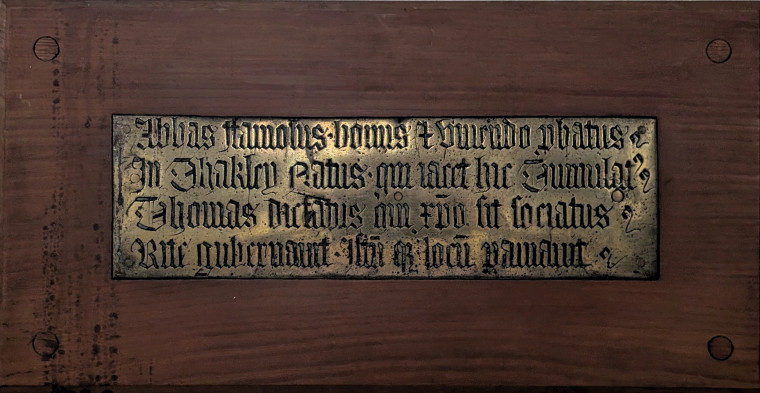 Abbas famosus · bonus & viuendo ꝓbatus
In Thakley Natus · qui iacet hic Tumulatꝰ
Thomas dictatus qui xp̄o sit sociatus
Rite gubernauit · Istū qꝫ locū ꝑamauit